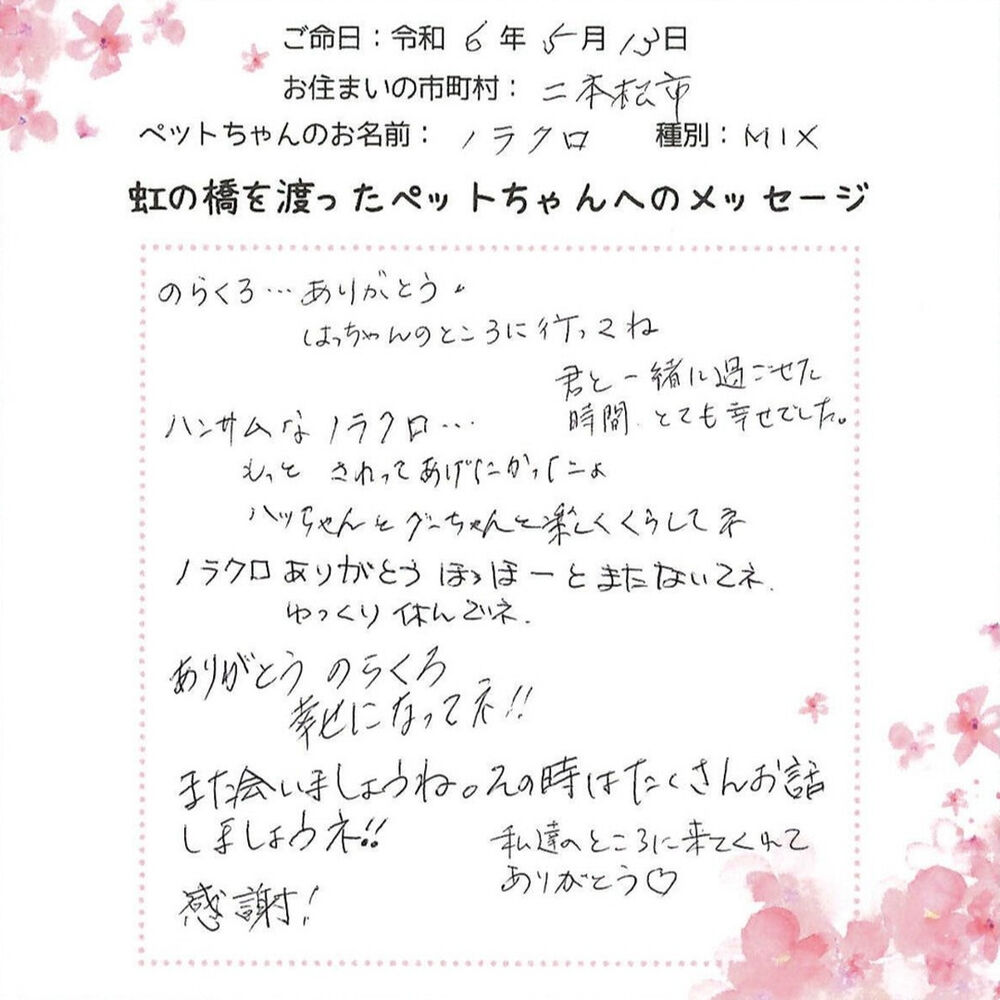 ご命日：令和 6 年 5 月 13 日
お住まいの市町村： 二本松市
ペットちゃんのお名前： ノラクロ 種別：MIX
虹の橋を渡ったペットちゃんへのメッセージ
のらくろ…ありがとう。
はっちゃんのところに行ってね
君と一緒に過ごせた
時間、とても幸せでした。
ハンサムな ノラクロ…
もっと されってあげたかったよ
ハッちゃんとグーちゃんと楽しくくらしてネ
ノラクロ ありがとう ほっほーと またないてネ.
ゆっくり 休んでネ.
ありがとう のらくろ
幸せになってネ!!
また会いましょうね。その時はたくさんお話
しましょうネ!!
私達のところに来てくれて
ありがとう♡
感謝!